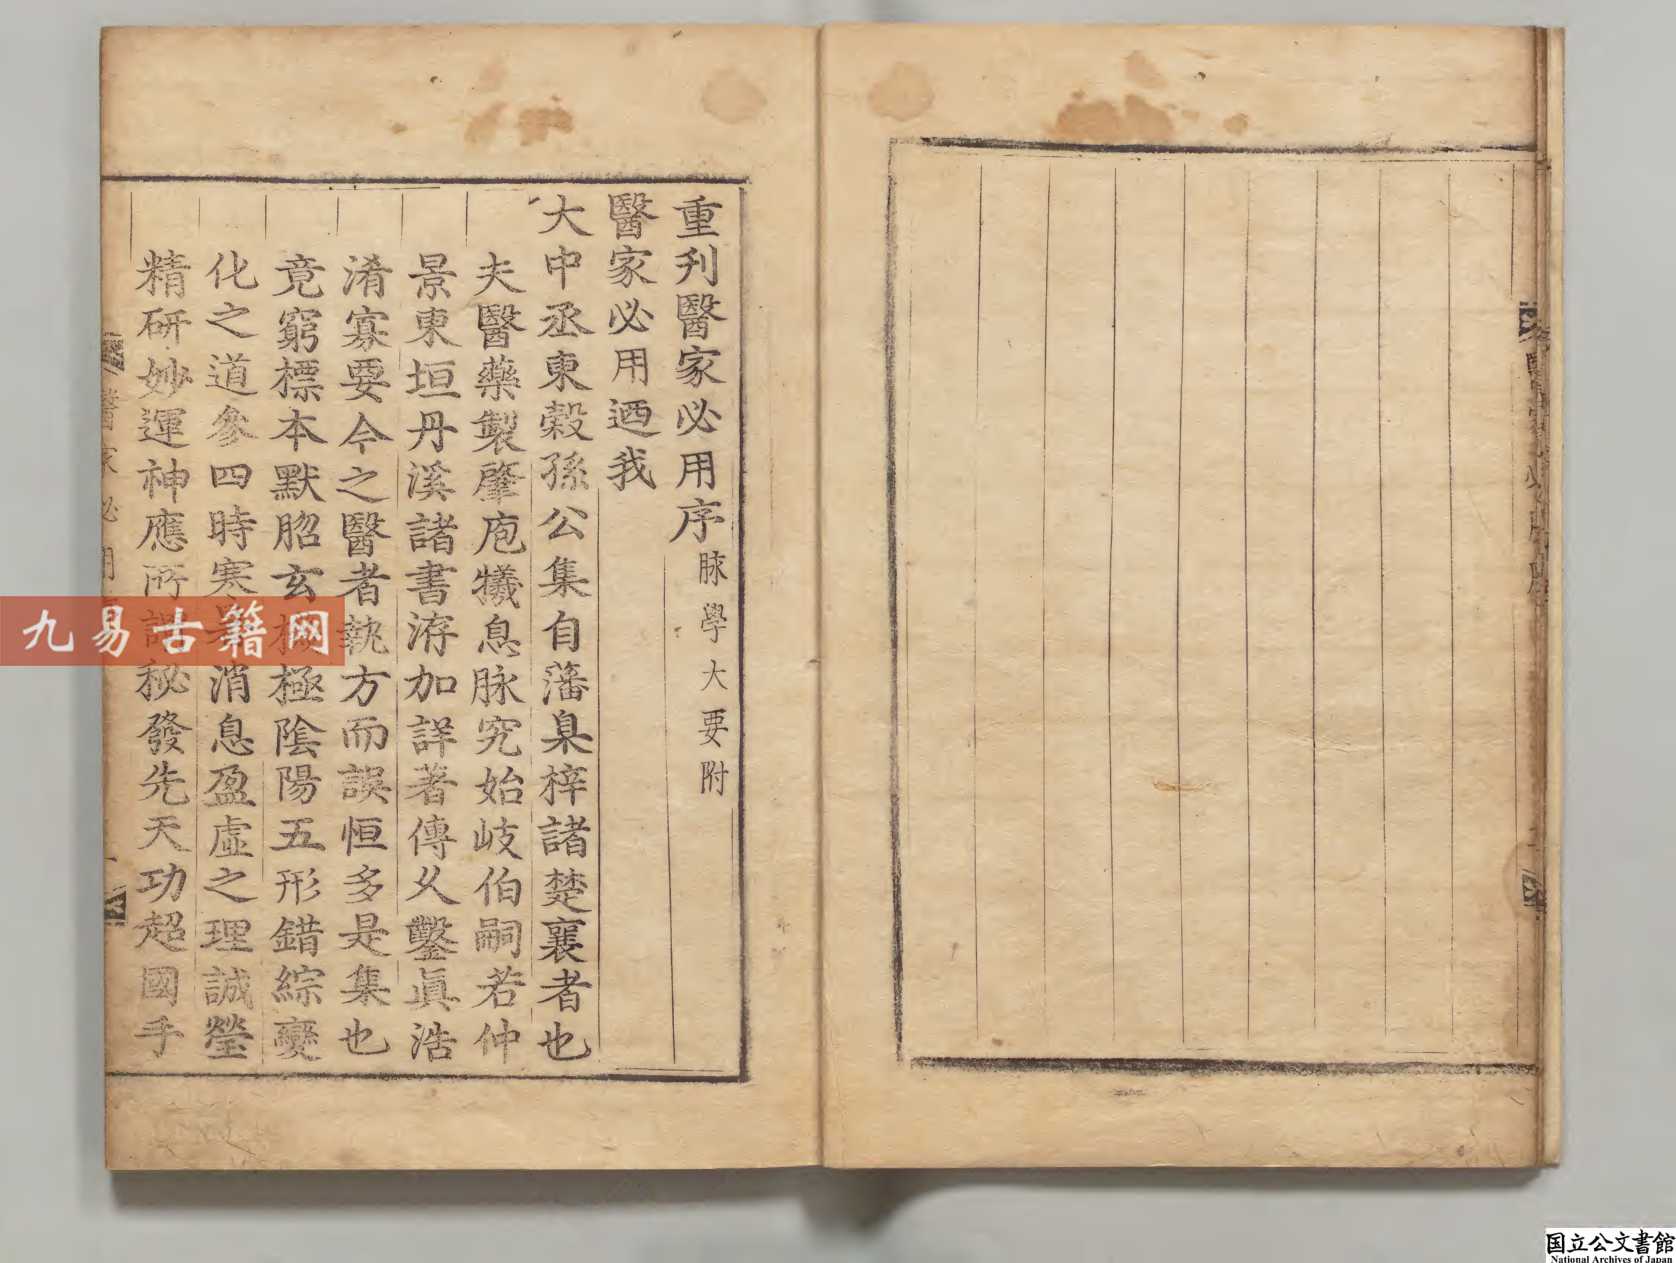 重刋醫家必用序 脉學大要附
醫家必用迺我
大中丞東穀孫公集自藩臬梓諸楚襄者也
夫醫藥製肇庖犧息脉究始岐伯嗣若仲
景東垣丹溪諸書洊加詳著傳乆鑿眞浩
淆寡要今之醫者執方而誤恒多是集也
竟窮標本默眧玄機極陰陽五形錯綜變
化之道參四時寒暑消息盈虛之理誠瑩
精研妙運神應所謂秘發先天功超國手
醫家必用
九易古籍网
国立公文書館
National Archives of Japan